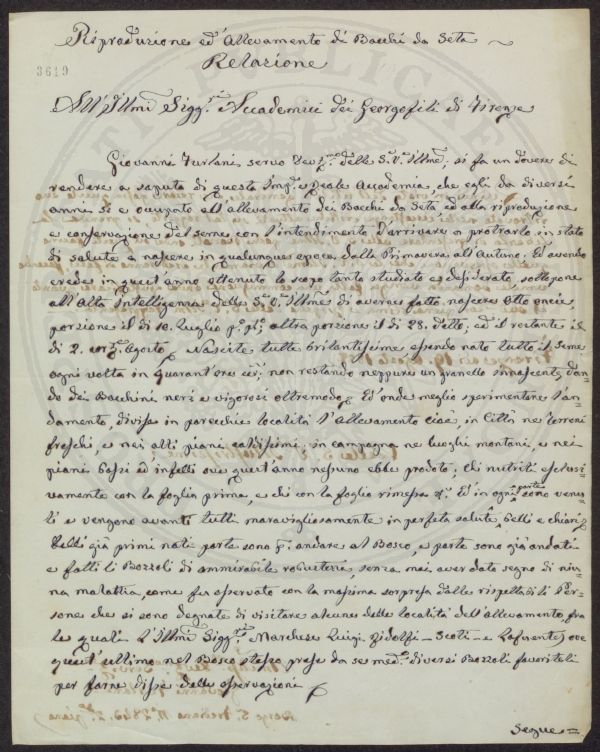 Riproduzione ed'Allevamento di Bacchi da Seta
Relazione
3619
All'Illmi Siggri Accademici dei Georgofili di Firenze
Giovanni Furlani servo Devmo delle S.V. Illme, si fa un dovere di
rendere a saputa di questa Imp. e Reale Accademia, che egli da diversi
anni si è occupato all'allevamento dei Bacchi da Seta ed alla riproduzione
e conservazione del seme con l'intendimento d'arrivare a protrarlo in stato
di salute a nascere in qualunque epoca dalla Primavera all'Autuno. Ed avendo
crede in quest'anno ottenuto lo scopo tanto studiato e desiderato, sottopone
all'Alta Intelligenza delle S.V. Illme di averne fatto nascere Otto oncie,
porzione il di 10. Luglio altra porzione il di 28. detto, ed il restante il
di 2. Agosto. Nascite tutte brilantissime essendo nato tutto il seme
ogni volta in quarant'ore non restando neppure un granello innascente, dan=
do dei Bacchini neri e vigorosi oltremodo. Ed'onde meglio sperimentare l'an=
damento, divise in parecchie località l'allevamento cioè, in Città ne terreni
freschi, e nei alti piani caldissimi: in campagna ne luoghi montani, e nei
piani bassi ed infetti ove quest'anno nesuno ebbe prodoto; chi nutriti esclusi=
vamente con la foglia prima, e chi con la foglia rimessa Ed in ogni parte sono venu=
ti e vengono avanti tutti maravigliosamente in perfeta salute, belli e chiari.
Delli già primi nati parte sono andare al Bosco, e parte sono già andati
e fatti li Bozzoli di ammirabile robusteria, senza mai aver dato segno di niu=
na malattia, come fu osservato con la massima sorpresa dalle rispettabili Per=
sone che si sono degnate di visitare alcune delle località dell'allevamento fra
le quali l'Illmi Siggri Marchese Luigi Ridolfi - Scoti - e Laferente, ove
quest'ultimo nel Bosco stesso prese da se medo diversi Bozzoli favoriteli
per farne disse delle osservazioni
Segue=